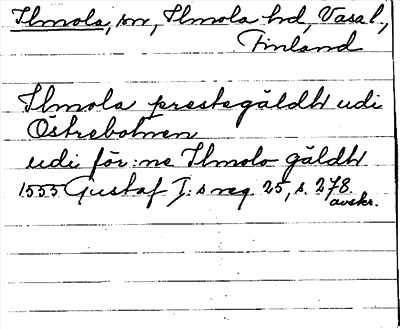 Ilmola, sn, Ilmola hd, Vasa l.,
Finland
Ilmola prestegäldh udi
Östrebotnen
udi för:ne Ilmolo gäldh
1555 Gustaf I:s reg 25, s. 278.
avskr.